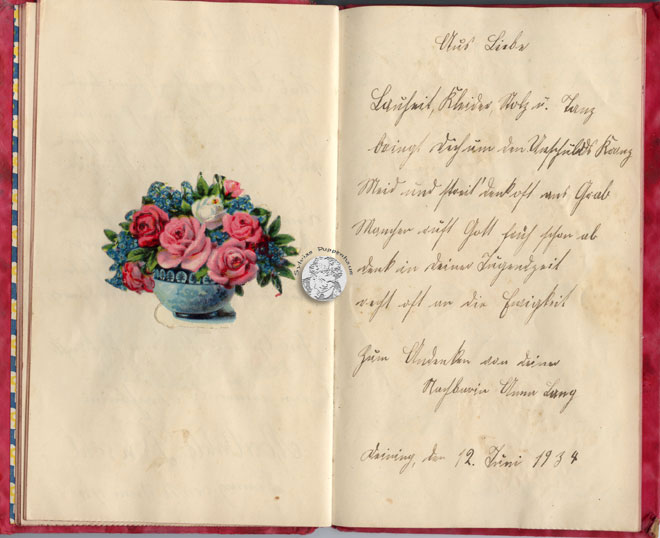 Aus Liebe
Lauheit, Kleider Stolz u. Tanz
bringt Dich um den Unschulds Kranz
Meid und denk oft ans Grab
Mancher ruft Gott früh schon ab
denk in deiner Jugendzeit
recht oft an die Ewigkeit
Zum Andenken von deiner
Nachbarin Anna Lang
den 12. Juni 1934
Sylvias Puppenhaus